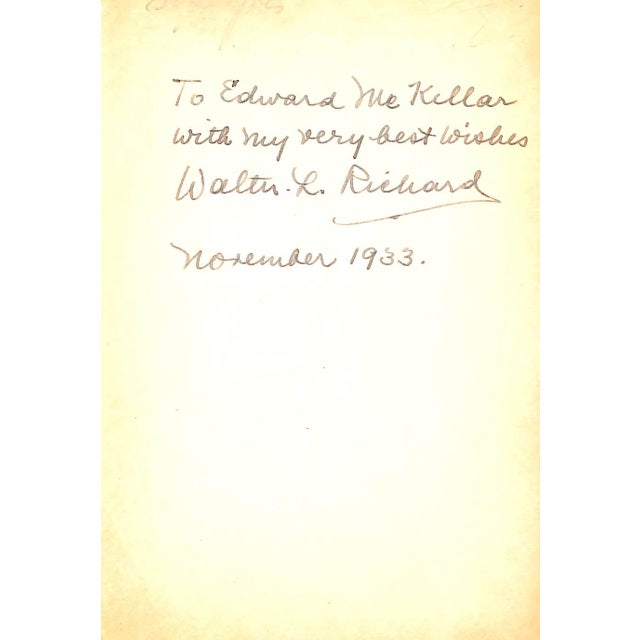 To Edward McKellar
with my very best wishes
Walter. L. Richard
November 1933.